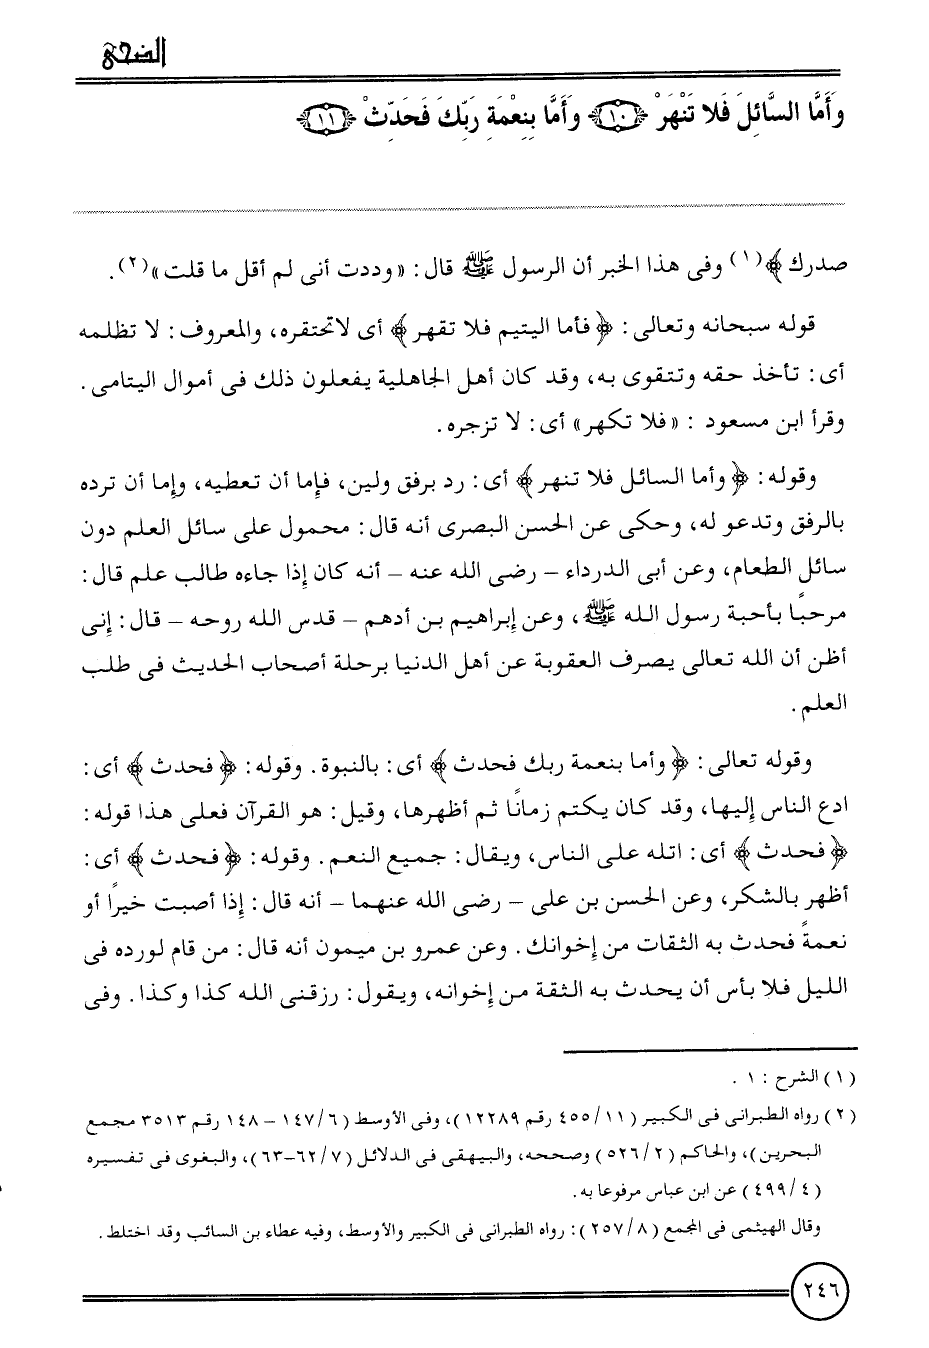 الضحى
وَأَمَّا السَّائِلَ فَلا تَنْهَرْ ﴿١٠﴾ وَأَمَّا بِنِعْمَةِ رَبِّكَ فَحَدِّثْ ﴿١١﴾
صدرك ﴾(١) وفى هذا الخبر أن الرسول ﷺ قال : « وددت أنى لم أقل ما قلت »(٢).
قوله سبحانه وتعالى : ﴿ فأما اليتيم فلا تقهر ﴾ أى لاتحتقره، والمعروف : لا تظلمه
أى : تأخذ حقه وتتقوى به، وقد كان أهل الجاهلية يفعلون ذلك فى أموال اليتامى .
وقرأ ابن مسعود : « فلا تكهر » أى : لا تزجره .
وقوله : ﴿ وأما السائل فلا تنهر ﴾ أى : رد برفق ولين، فإما أن تعطيه، وإما أن ترده
بالرفق وتدعو له، وحكى عن الحسن البصرى أنه قال : محمول على سائل العلم دون
سائل الطعام، وعن أبى الدرداء – رضى الله عنه – أنه كان إذا جاءه طالب علم قال :
مرحبًا بأحبة رسول الله ﷺ، وعن إبراهيم بن أدهم – قدس الله روحه – قال : إنى
أظن أن الله تعالى يصرف العقوبة عن أهل الدنيا برحلة أصحاب الحديث فى طلب
العلم .
وقوله تعالى : ﴿ وأما بنعمة ربك فحدث ﴾ أى : بالنبوة . وقوله : ﴿ فحدث ﴾ أى :
ادع الناس إليها، وقد كان يكتم زمانًا ثم أظهرها، وقيل : هو القرآن فعلى هذا قوله :
﴿ فحدث ﴾ أى : اتله على الناس، ويقال : جميع النعم . وقوله : ﴿ فحدث ﴾ أى :
أظهر بالشكر، وعن الحسن بن على – رضى الله عنهما – أنه قال : إذا أصبت خيرًا أو
نعمةً فحدث به الثقات من إخوانك . وعن عمرو بن ميمون أنه قال : من قام لورده فى
الليل فلا بأس أن يحدث به الثقة من إخوانه، ويقول : رزقنى الله كذا وكذا . وفى
(١) الشرح : ١ .
(٢) رواه الطبرانى فى الكبير (١١/ ٤٥٥ رقم ١٢٢٨٩)، وفى الأوسط (٦/ ١٤٧ – ١٤٨ رقم ٣٥١٣ مجمع
البحرين)، والحاكم (٢/ ٥٢٦) وصححه، والبيهقى فى الدلائل (٧/ ٦٢–٦٣)، والبغوى فى تفسيره
(٤/ ٤٩٩) عن ابن عباس مرفوعا به .
وقال الهيثمى فى المجمع (٨/ ٢٥٧) : رواه الطبرانى فى الكبير والأوسط، وفيه عطاء بن السائب وقد اختلط .
٢٤٦